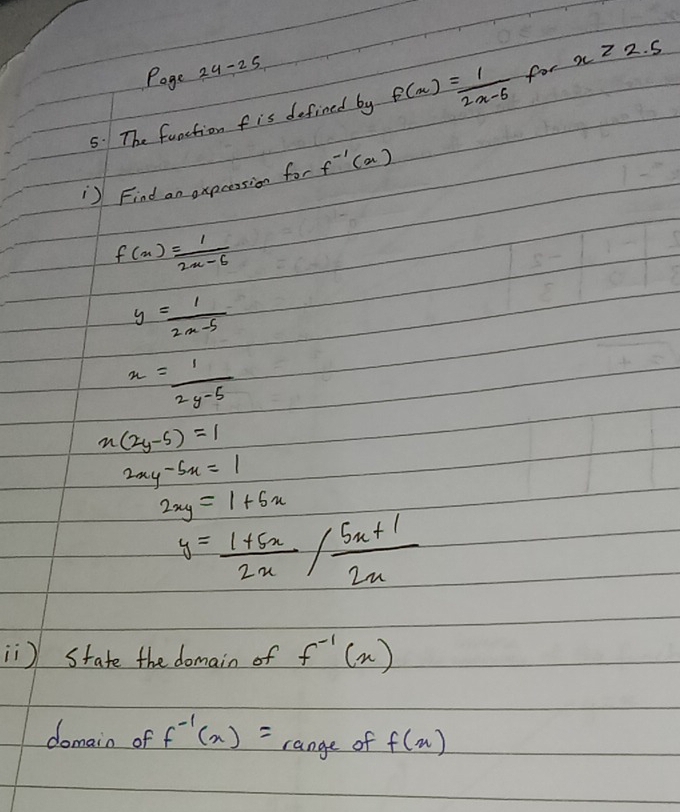 Page 24-25
5. The function f is defined by f(x) = 1/(2x-5) for x ≥ 2.5
i) Find an expression for f⁻¹(x)
f(x) = 1/(2x-5)
y = 1/(2x-5)
x = 1/(2y-5)
x(2y-5) = 1
2xy-5x = 1
2xy = 1+5x
y = (1+5x)/(2x) / (5x+1)/(2x)
ii) State the domain of f⁻¹(x)
domain of f⁻¹(x) = range of f(x)